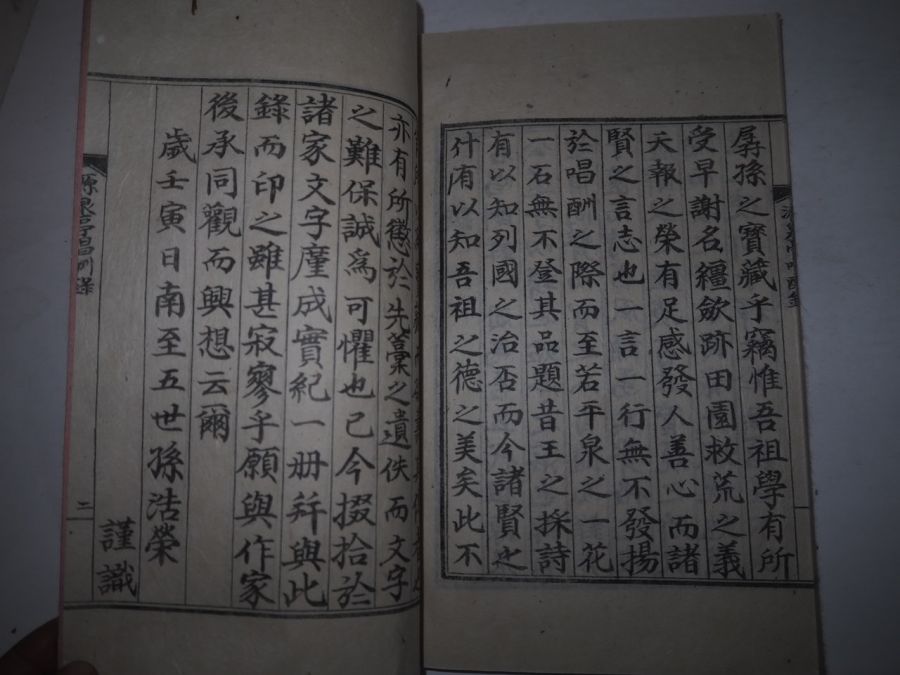 孱孫之寶藏乎竊惟吾祖學有所
受早謝名繮斂跡田園救荒之義
天報之榮有足感發人善心而諸
賢之言志也一言一行無不發揚
於唱酬之際而至若平泉之一花
一石無不登其品題昔王之採詩
有以知列國之治否而今諸賢之
什有以知吾祖之德之美矣此不
亦有所懲於先藁之遺佚而文字
之難保誠爲可懼也已今掇拾於
諸家文字廑成實紀一册幷與此
錄而印之雖甚寂寥乎願與作家
後承同觀而興想云爾
歲壬寅日南至五世孫浩榮
謹識
二